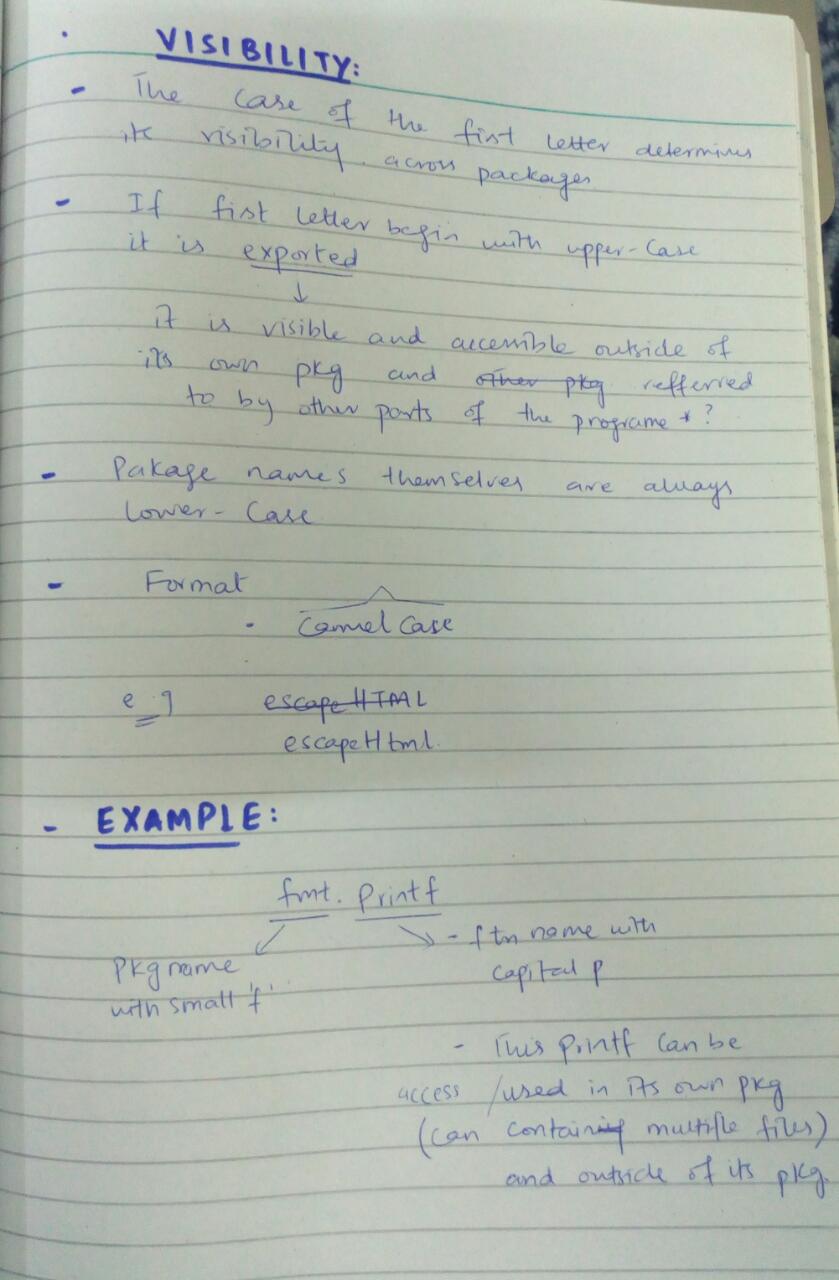 VISIBILITY:
- The case of the first letter determines
its visibility across packages
- If first letter begin with upper-case
it is exported
↓
it is visible and accessible outside of
its own pkg and other pkg refferred
to by other parts of the programe * ?
- Pakage names themselves are always
lower-case
- Format
· Camel Case
e g escapeHTML
escapeHtml.
- EXAMPLE:
fmt. Printf
- ftn name with
capital P
Pkg name
with small 'f'
- This Printf can be
access /used in its own pkg
(can containing multiple files)
and outside of its pkg.